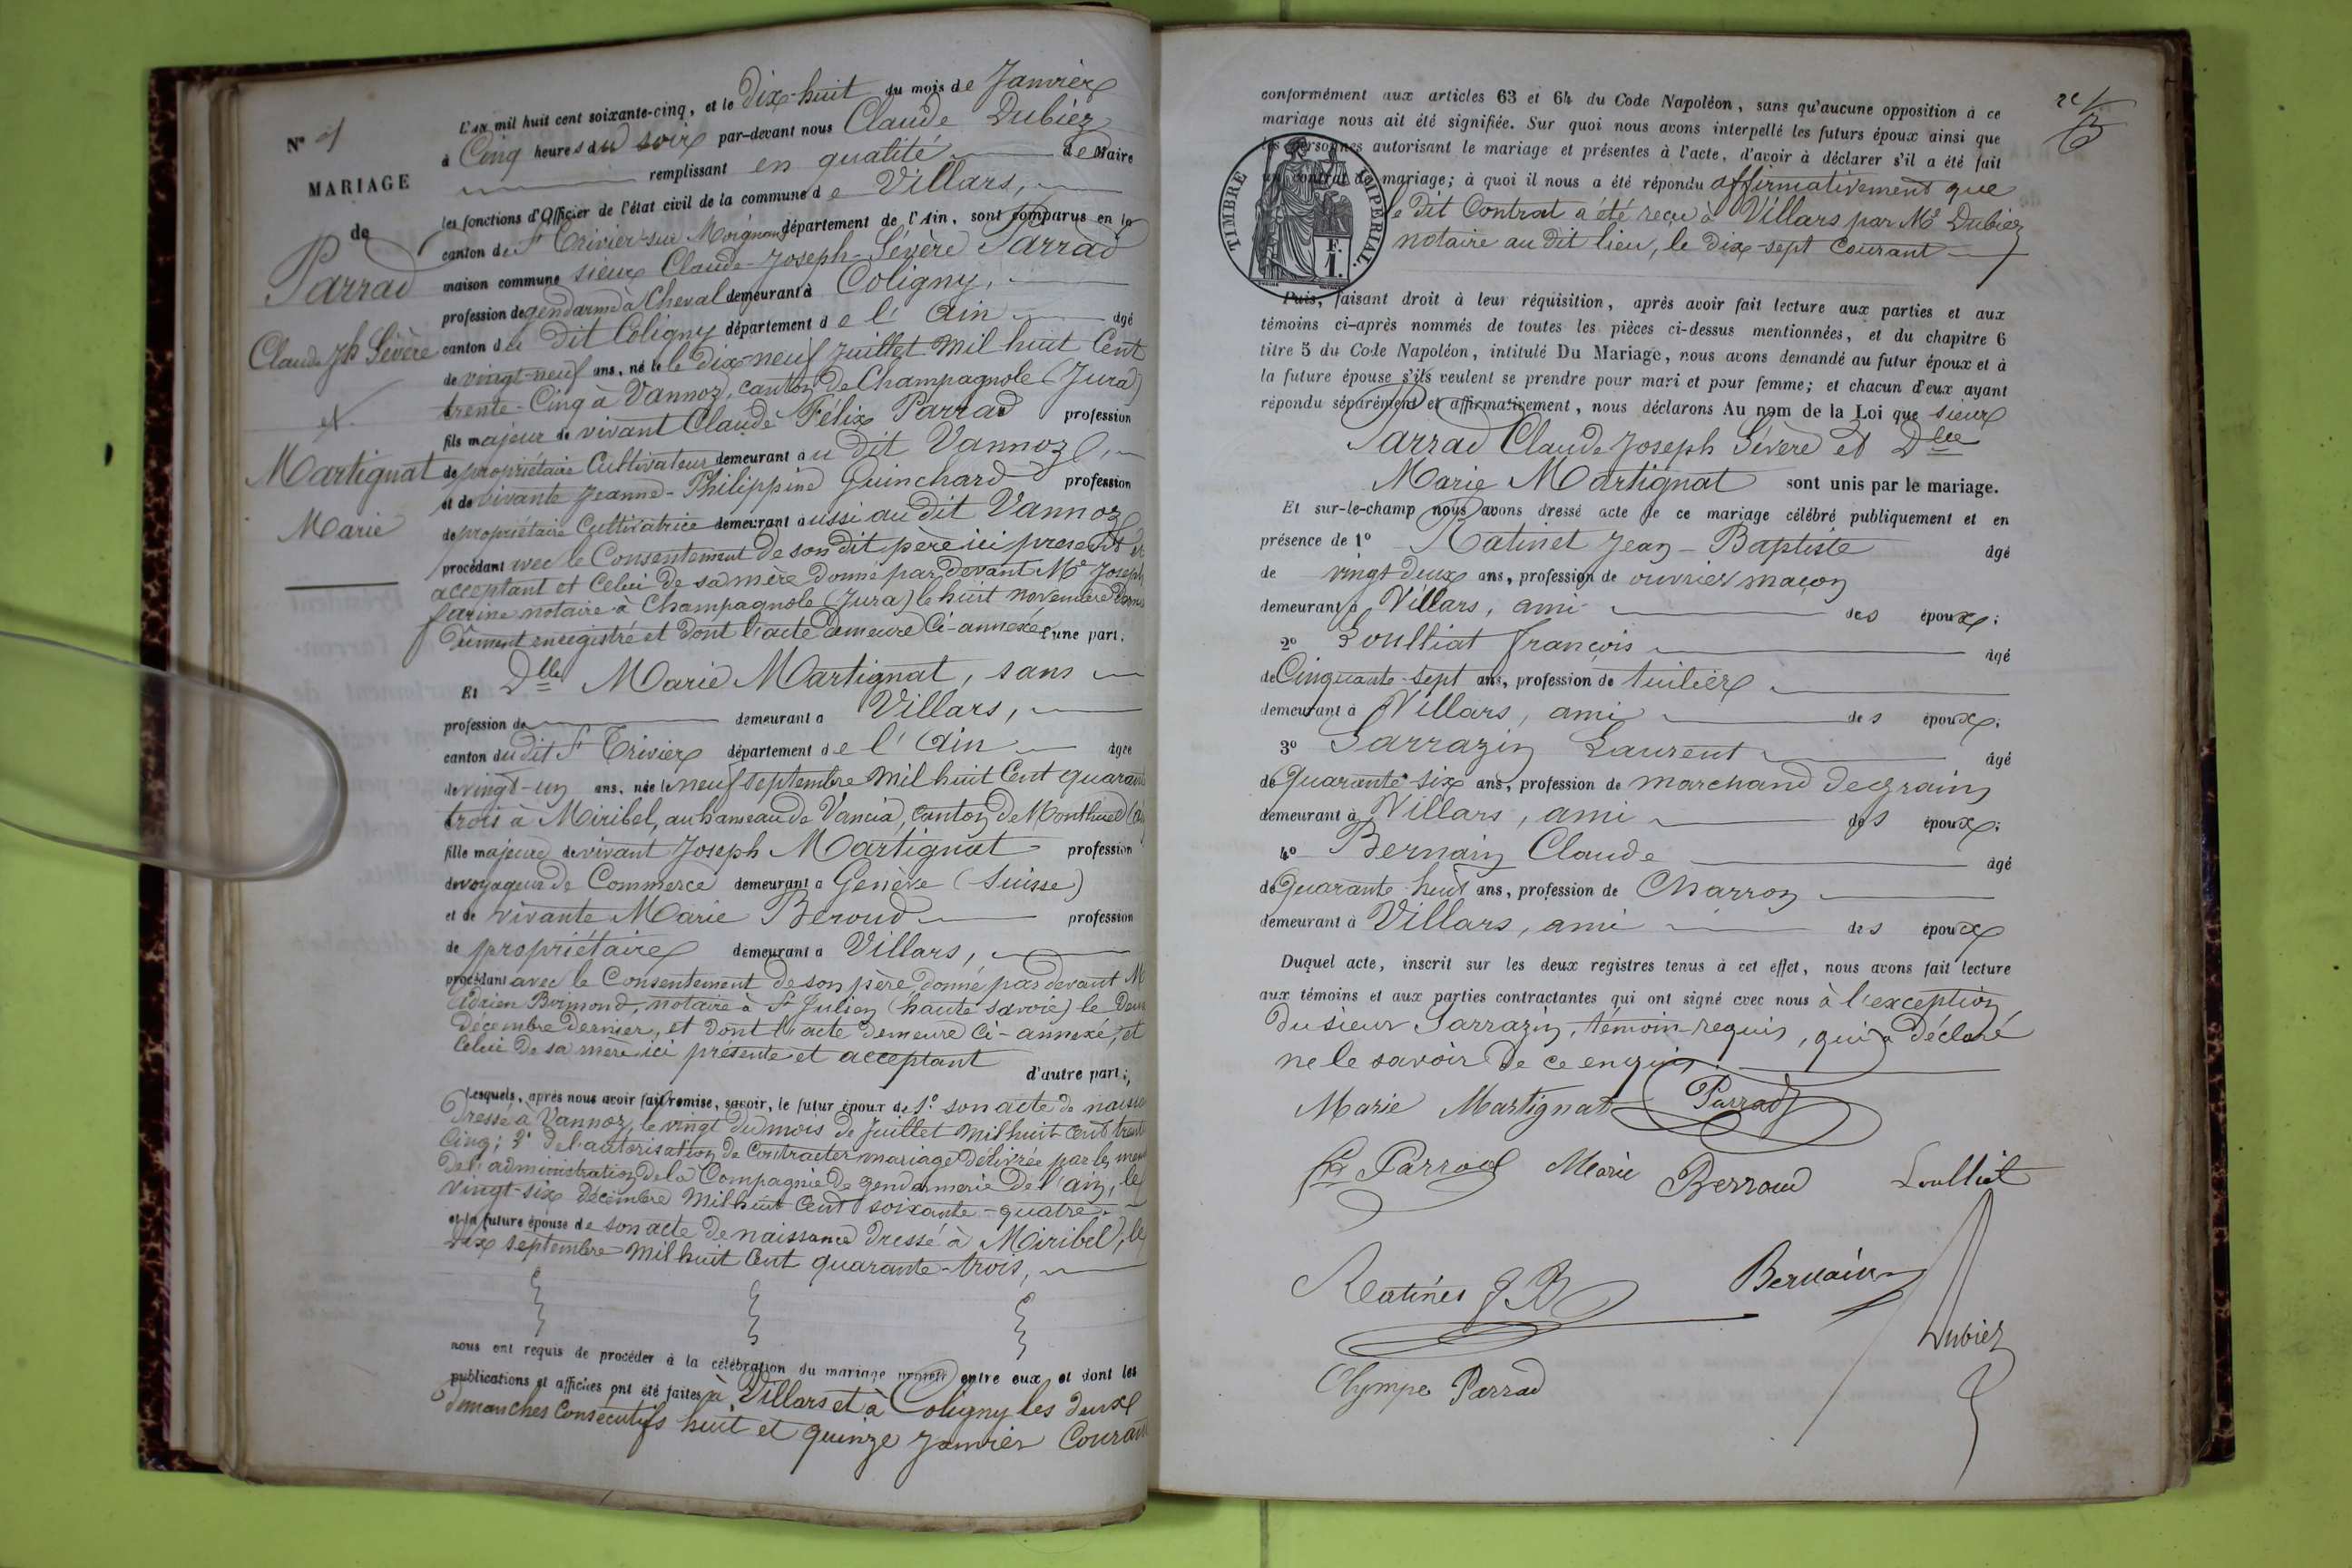 L'an mil huit cent soixante-cinq, et le Dix-huit du mois de Janvier
à Cinq heures du soir par-devant nous Claude Dubiez
remplissant en qualité de Maire
les fonctions d'Officier de l'état civil de la commune de Villars,
canton de St Trivier-sur Moignans département de l'Ain, sont comparus en la
maison commune sieur Claude-Joseph-Sévère Parrad
profession de gendarme à Cheval demeurant à Coligny,
canton du dit Coligny département de l'Ain âgé
de vingt-neuf ans, né le le Dix-neuf Juillet mil huit Cent
trente-Cinq à Vannoz, canton de Champagnole (Jura)
fils majeur de vivant Claude Félix Parrad profession
de propriétaire Cultivateur demeurant au dit Vannoz,
et de vivante Jeanne-Philippine Guinchard profession
de propriétaire Cultivatrice demeurant aussi au dit Vannoz
procédant avec le Consentement de son dit père ici présent et
acceptant et Celui de sa mère donné par devant Me Joseph
notaire à Champagnole (Jura) le huit novembre
Dûment enregistré et Dont l'acte demeure Ci-annexé d'une part.
Et Dlle Marie Martignat, sans
profession de demeurant à Villars,
canton du dit St Trivier département de l'Ain âgée
de vingt-un ans, née le neuf septembre mil huit Cent quarante
trois à Miribel, au hameau de Vancia, canton de Montluel
fille majeure de vivant Joseph Martignat profession
de voyageur de Commerce demeurant à Genève (Suisse)
et de vivante Marie Beroud profession
de propriétaire demeurant à Villars,
procédant avec le Consentement de son père, donné par devant M
Adrien notaire à St Julien (haute savoie) le
décembre dernier, et dont l'acte demeure Ci-annexé, et
Celui De sa mère ici présente et acceptant
d'autre part;
Lesquels, après nous avoir fait remise, savoir, le futur époux de 1° son acte de
Dressé à Vannoz, le vingt du mois de Juillet mil huit Cent
Cinq; 2° de l'autorisation de Contracter mariage Délivrée par les
De l'administration de la Compagnie de gendarmerie De l'ain, le
vingt-six Décembre Mil huit Cent soixante-quatre.
et la future épouse de son acte de naissance dressé à Miribel, le
Dix septembre mil huit Cent quarante-trois,
nous ont requis de procéder à la célébration du mariage projeté entre eux, et dont les
publications et affiches ont été faites à Villars et à Coligny les deux
dimanches Consécutifs huit et quinze Janvier Courant
N°
MARIAGE
de
Parrad
Claude Jph Sévère
et
Martignat
Marie
conformément aux articles 63 et 64 du Code Napoléon, sans qu'aucune opposition à ce
mariage nous ait été signifiée. Sur quoi nous avons interpellé les futurs époux ainsi que
les personnes autorisant le mariage et présentes à l'acte, d'avoir à déclarer s'il a été fait
un contrat de mariage; à quoi il nous a été répondu affirmativement que
le Dit Contrat a été reçu à Villars par Me Dubiez
notaire au dit lieu, le dix-sept Courant
TIMBRE IMPÉRIAL.
F.
1.
Puis, faisant droit à leur réquisition, après avoir fait lecture aux parties et aux
témoins ci-après nommés de toutes les pièces ci-dessus mentionnées, et du chapitre 6
titre 5 du Code Napoléon, intitulé Du Mariage, nous avons demandé au futur époux et à
la future épouse s'ils veulent se prendre pour mari et pour femme; et chacun d'eux ayant
répondu séparément et affirmativement, nous déclarons Au nom de la Loi que sieur
Parrad Claude Joseph Sévère et Dlle
Marie Martignat sont unis par le mariage.
Et sur-le-champ nous avons dressé acte de ce mariage célébré publiquement et en
présence de 1° Ratinet Jean-Baptiste âgé
de vingt deux ans, profession de ouvrier maçon
demeurant à Villars, ami des époux;
2° Loulliat françois âgé
de Cinquante-sept ans, profession de tuilier
demeurant à Villars, ami des époux;
3° Sarrazin Laurent âgé
de quarante-six ans, profession de marchand de grain
demeurant à Villars, ami des époux;
4° Bernain Claude âgé
de quarante-huit ans, profession de Charron
demeurant à Villars, ami des époux
Duquel acte, inscrit sur les deux registres tenus à cet effet, nous avons fait lecture
aux témoins et aux parties contractantes qui ont signé avec nous à l'exception
du sieur Sarrazin, témoin requis, qui a déclaré
ne le savoir De ce enquis.
Marie Martignat Parrad
Parrad Marie Berroud Loulliat
Ratinet J B Bernain
Dubiez
Olympe Parrad